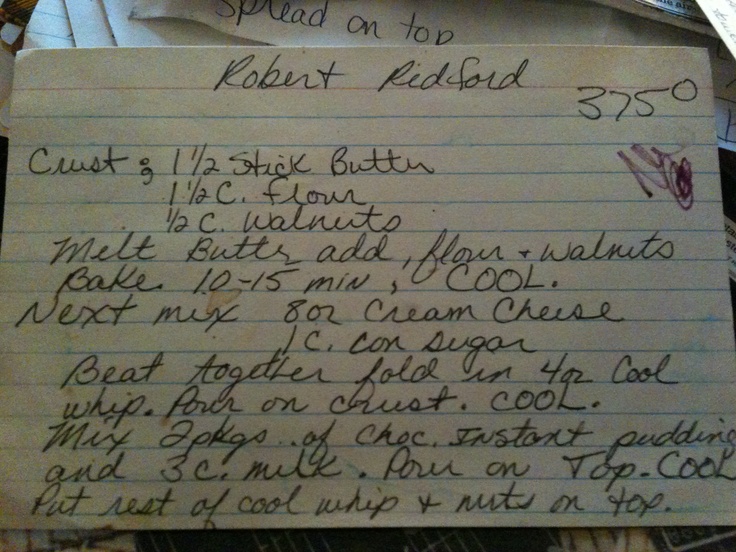 Spread on top
Robert Ridford
375°
Crust : 1 1/2 Stick Butter
1 1/2 C. flour
1/2 C. walnuts
Melt Butter add, flour + walnuts
Bake 10-15 min, COOL.
Next mix 8oz Cream Cheese
1 C. con sugar
Beat together fold in 4oz Cool
whip. Pour on crust. COOL.
Mix 2pkgs. of Choc. Instant pudding
and 3 C. milk. Pour on Top. COOL
Put rest of cool whip + nuts on top.